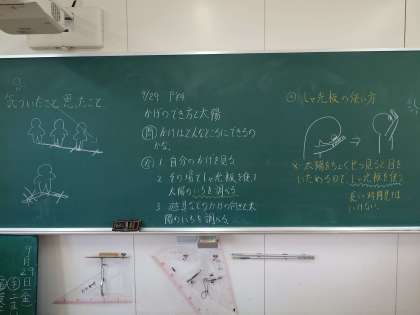 気づいたこと 思ったこと
9/29 P44
かげのでき方と太陽
問 かげはどんなところにできるのかな。
1 自分のかげを見る
2 その場でしゃ光板を使って
太陽のいちを調べる
3 遊具など
太陽のいちを調べる
しゃ光板の使い方
※ 太陽をちょくせつ見ると目を
いためるので、しゃ光板を使う
長い時間見ては
いけない。
9月29日(金)